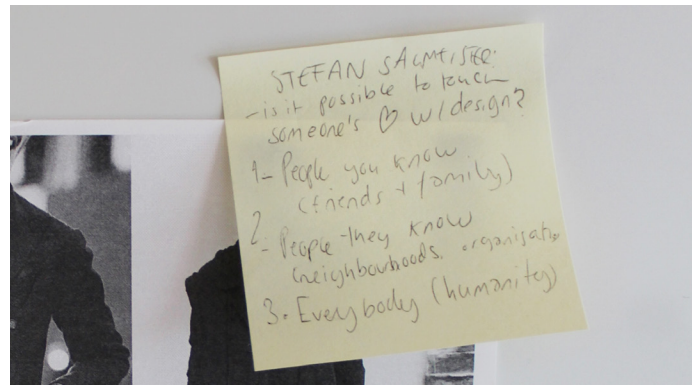 STEFAN SAGMEISTER:
- is it possible to touch
someone's ♡ w/ design?
1- People you know
(friends + family)
2- People they know
(neighbourhoods, organisatio
3. Everybody (humanity)